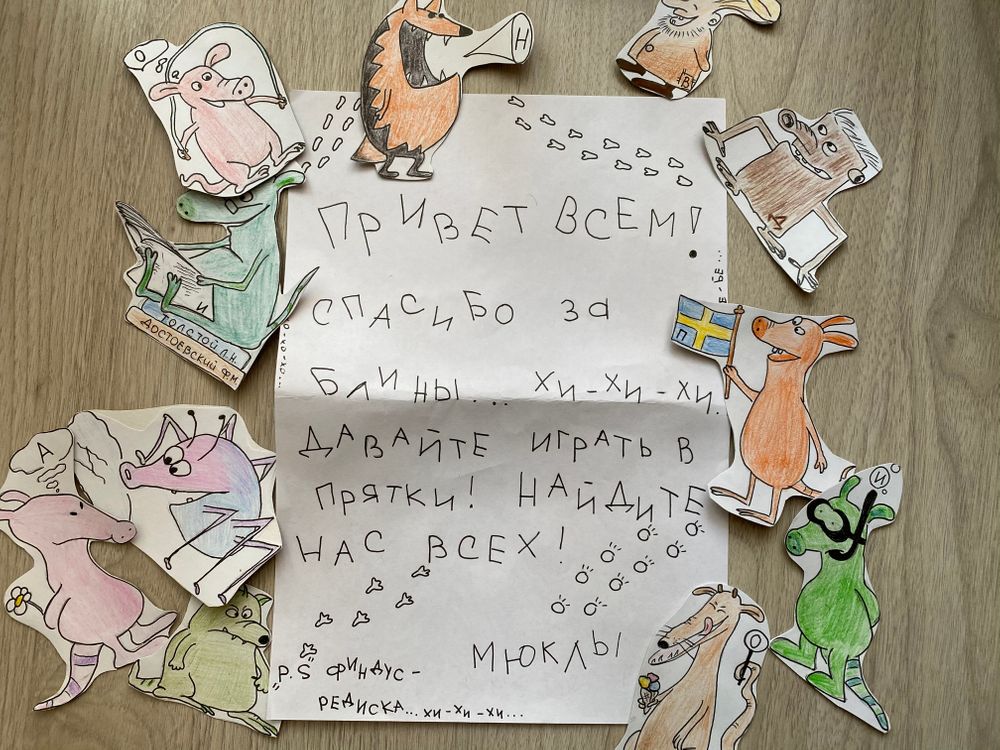 Н
В
Д
ПРИВЕТ ВСЕМ!
СПАСИБО ЗА
БЛИНЫ... ХИ-ХИ-ХИ.
ДАВАЙТЕ ИГРАТЬ В
ПРЯТКИ! НАЙДИТЕ
НАС ВСЕХ!
МЮКЛЫ
P.S ФИНДУС-
РЕДИСКА... ХИ-ХИ-ХИ...
И
ТОЛСТОЙ Л.Н.
ДОСТОЕВСКИЙ Ф.М.
П
А
И